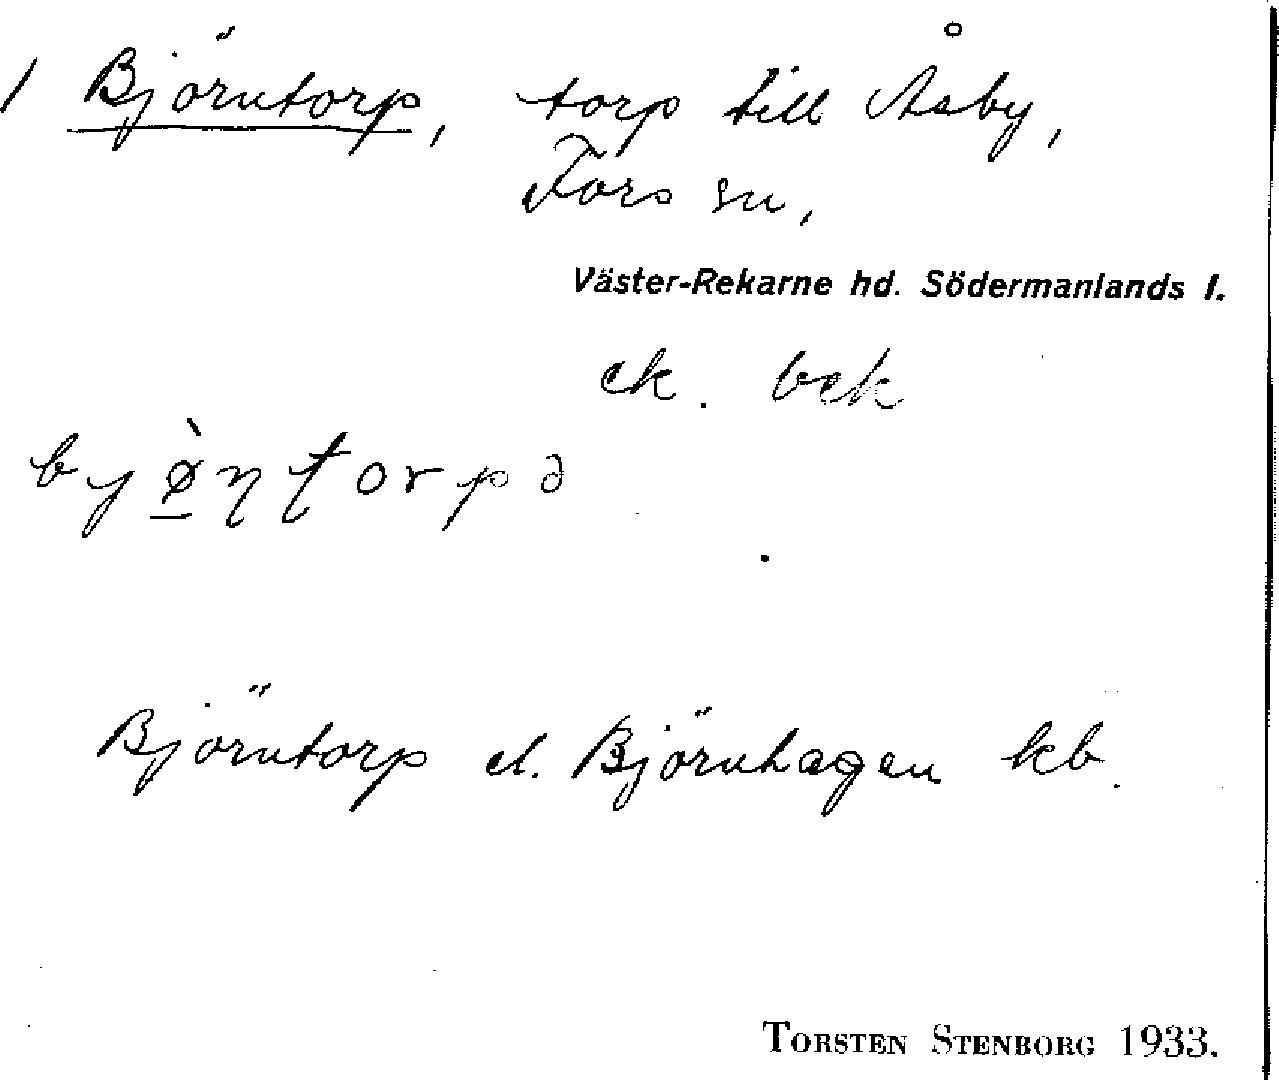 1 Björntorp, torp till Åsby,
Fors sn,
Väster-Rekarne hd. Södermanlands l.
ek. bek
Björntorp el. Björnhagen kb.
TORSTEN STENBORG 1933.